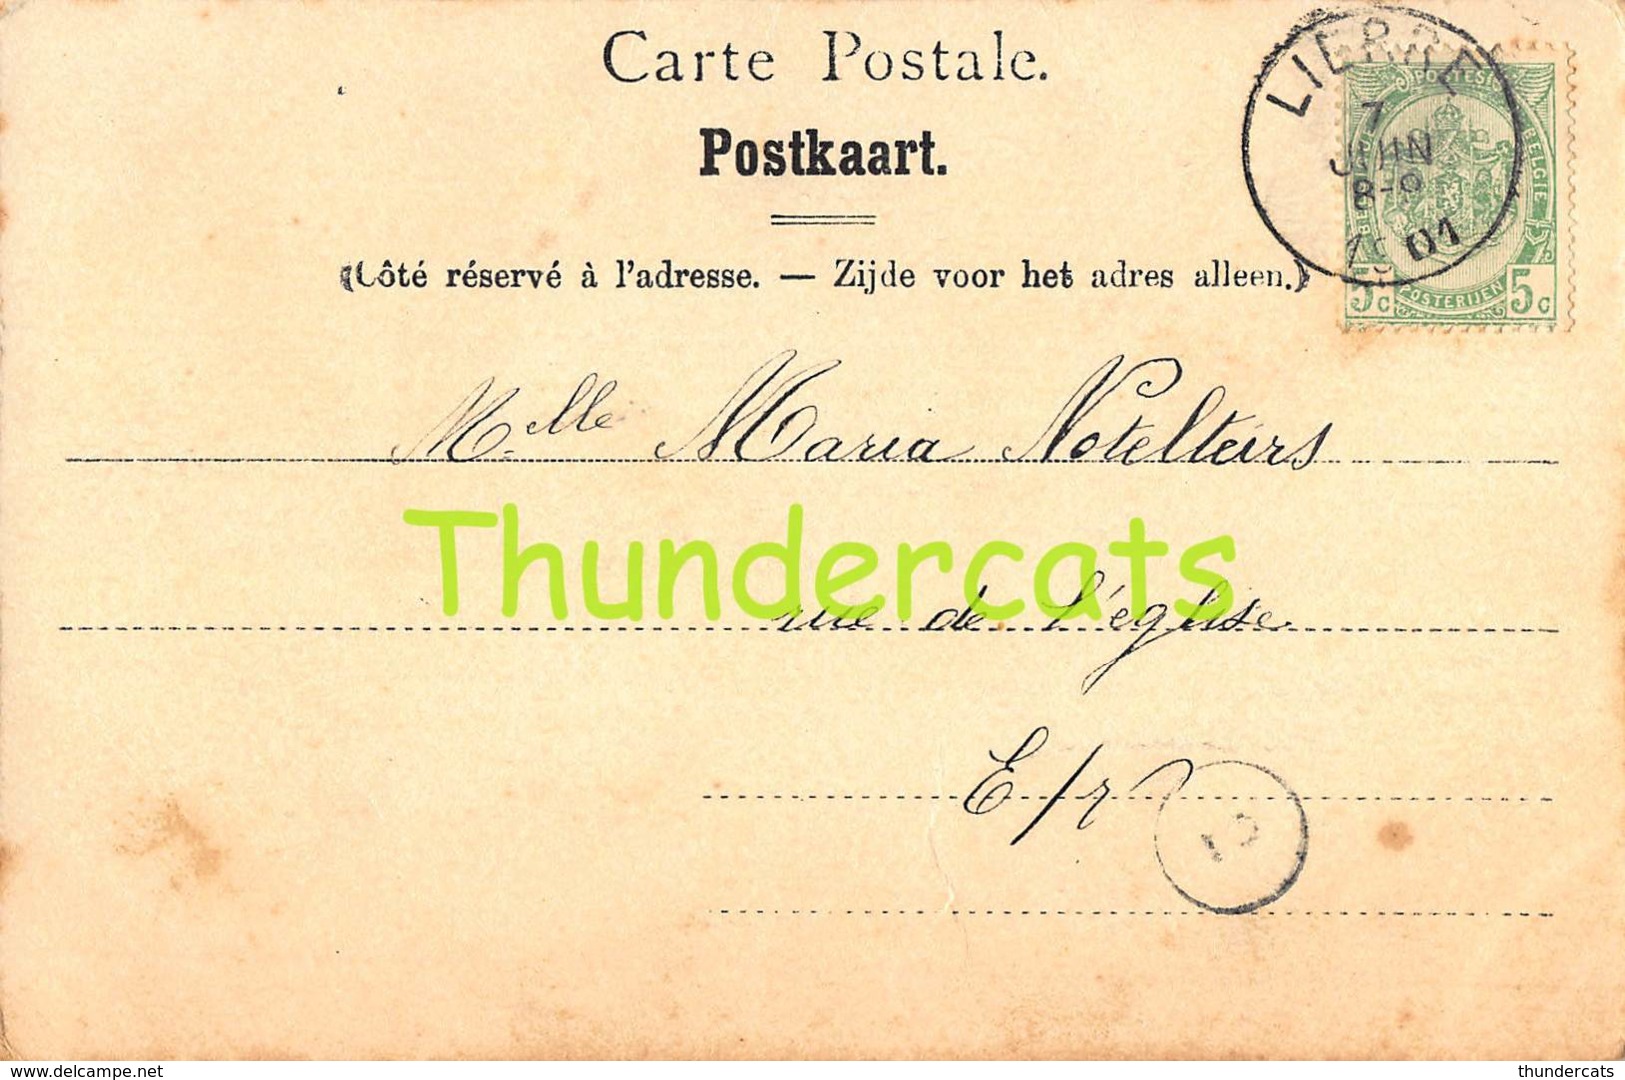 Carte Postale.
Postkaart.
(Côté réservé à l'adresse. — Zijde voor het adres alleen.)
LIERRE
7
JUIN
8-9
1901
POSTES
BELGIQUE
BELGIE
5c POSTERIJEN 5c
Mlle Maria Notelteirs
Thundercats
rue de l'église
E/r
www.delcampe.net
thundercats